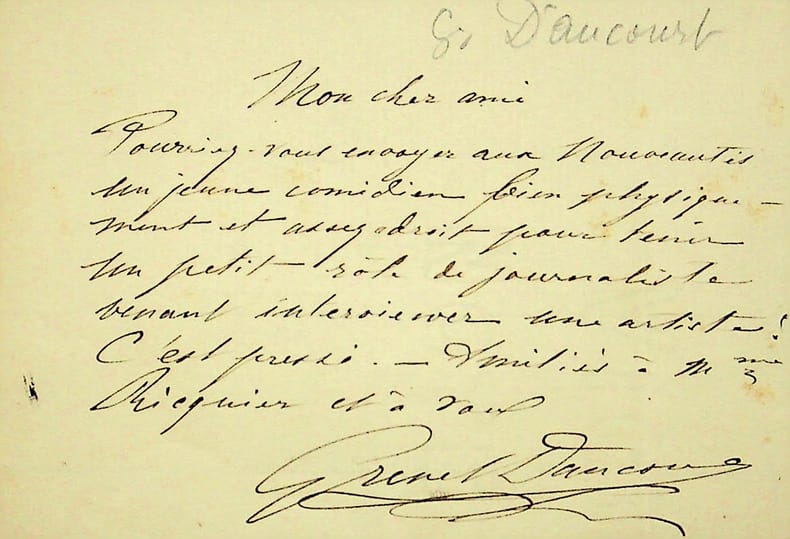 G. D'aucourt
Mon cher ami
Pourriez-vous envoyer aux Nouveautés
un jeune comédien bien physique-
ment et assez adroit pour tenir
un petit rôle de journaliste
venant interviewer une artiste?
C'est pressé. — Amitiés à Mme
Ricquier et à vous
Grenet Dancourt